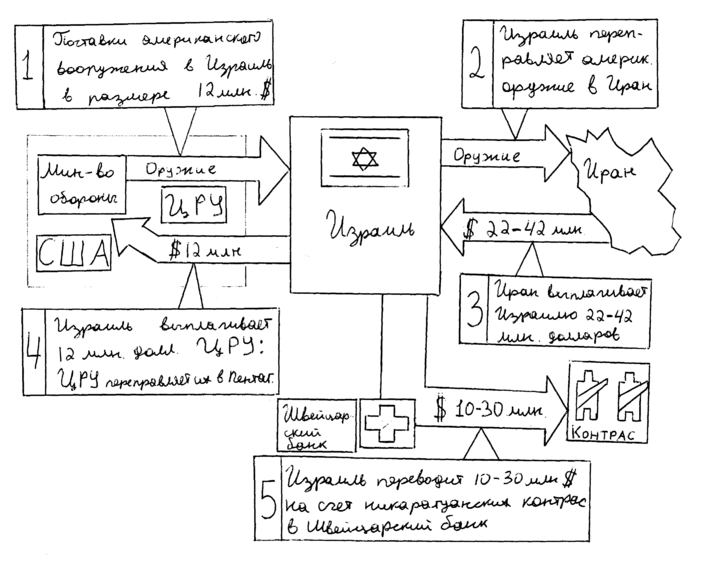 1
Поставки американского
вооружения в Израиль
в размере 12 млн. $
2
Израиль переп-
равляет америк.
оружие в Иран
Мин-во
обороны
Оружие
ЦРУ
США
$ 12 млн
Израиль
Оружие
Иран
$ 22-42 млн
3
Иран выплачивает
Израилю 22-42
млн. долларов
4
Израиль выплачивает
12 млн. долл. ЦРУ:
ЦРУ переправляет их в Пентаг.
Швейцар-
ский
банк
$ 10-30 млн.
Контрас
5
Израиль переводит 10-30 млн $
на счет никарагуанских контрас
в Швейцарский банк